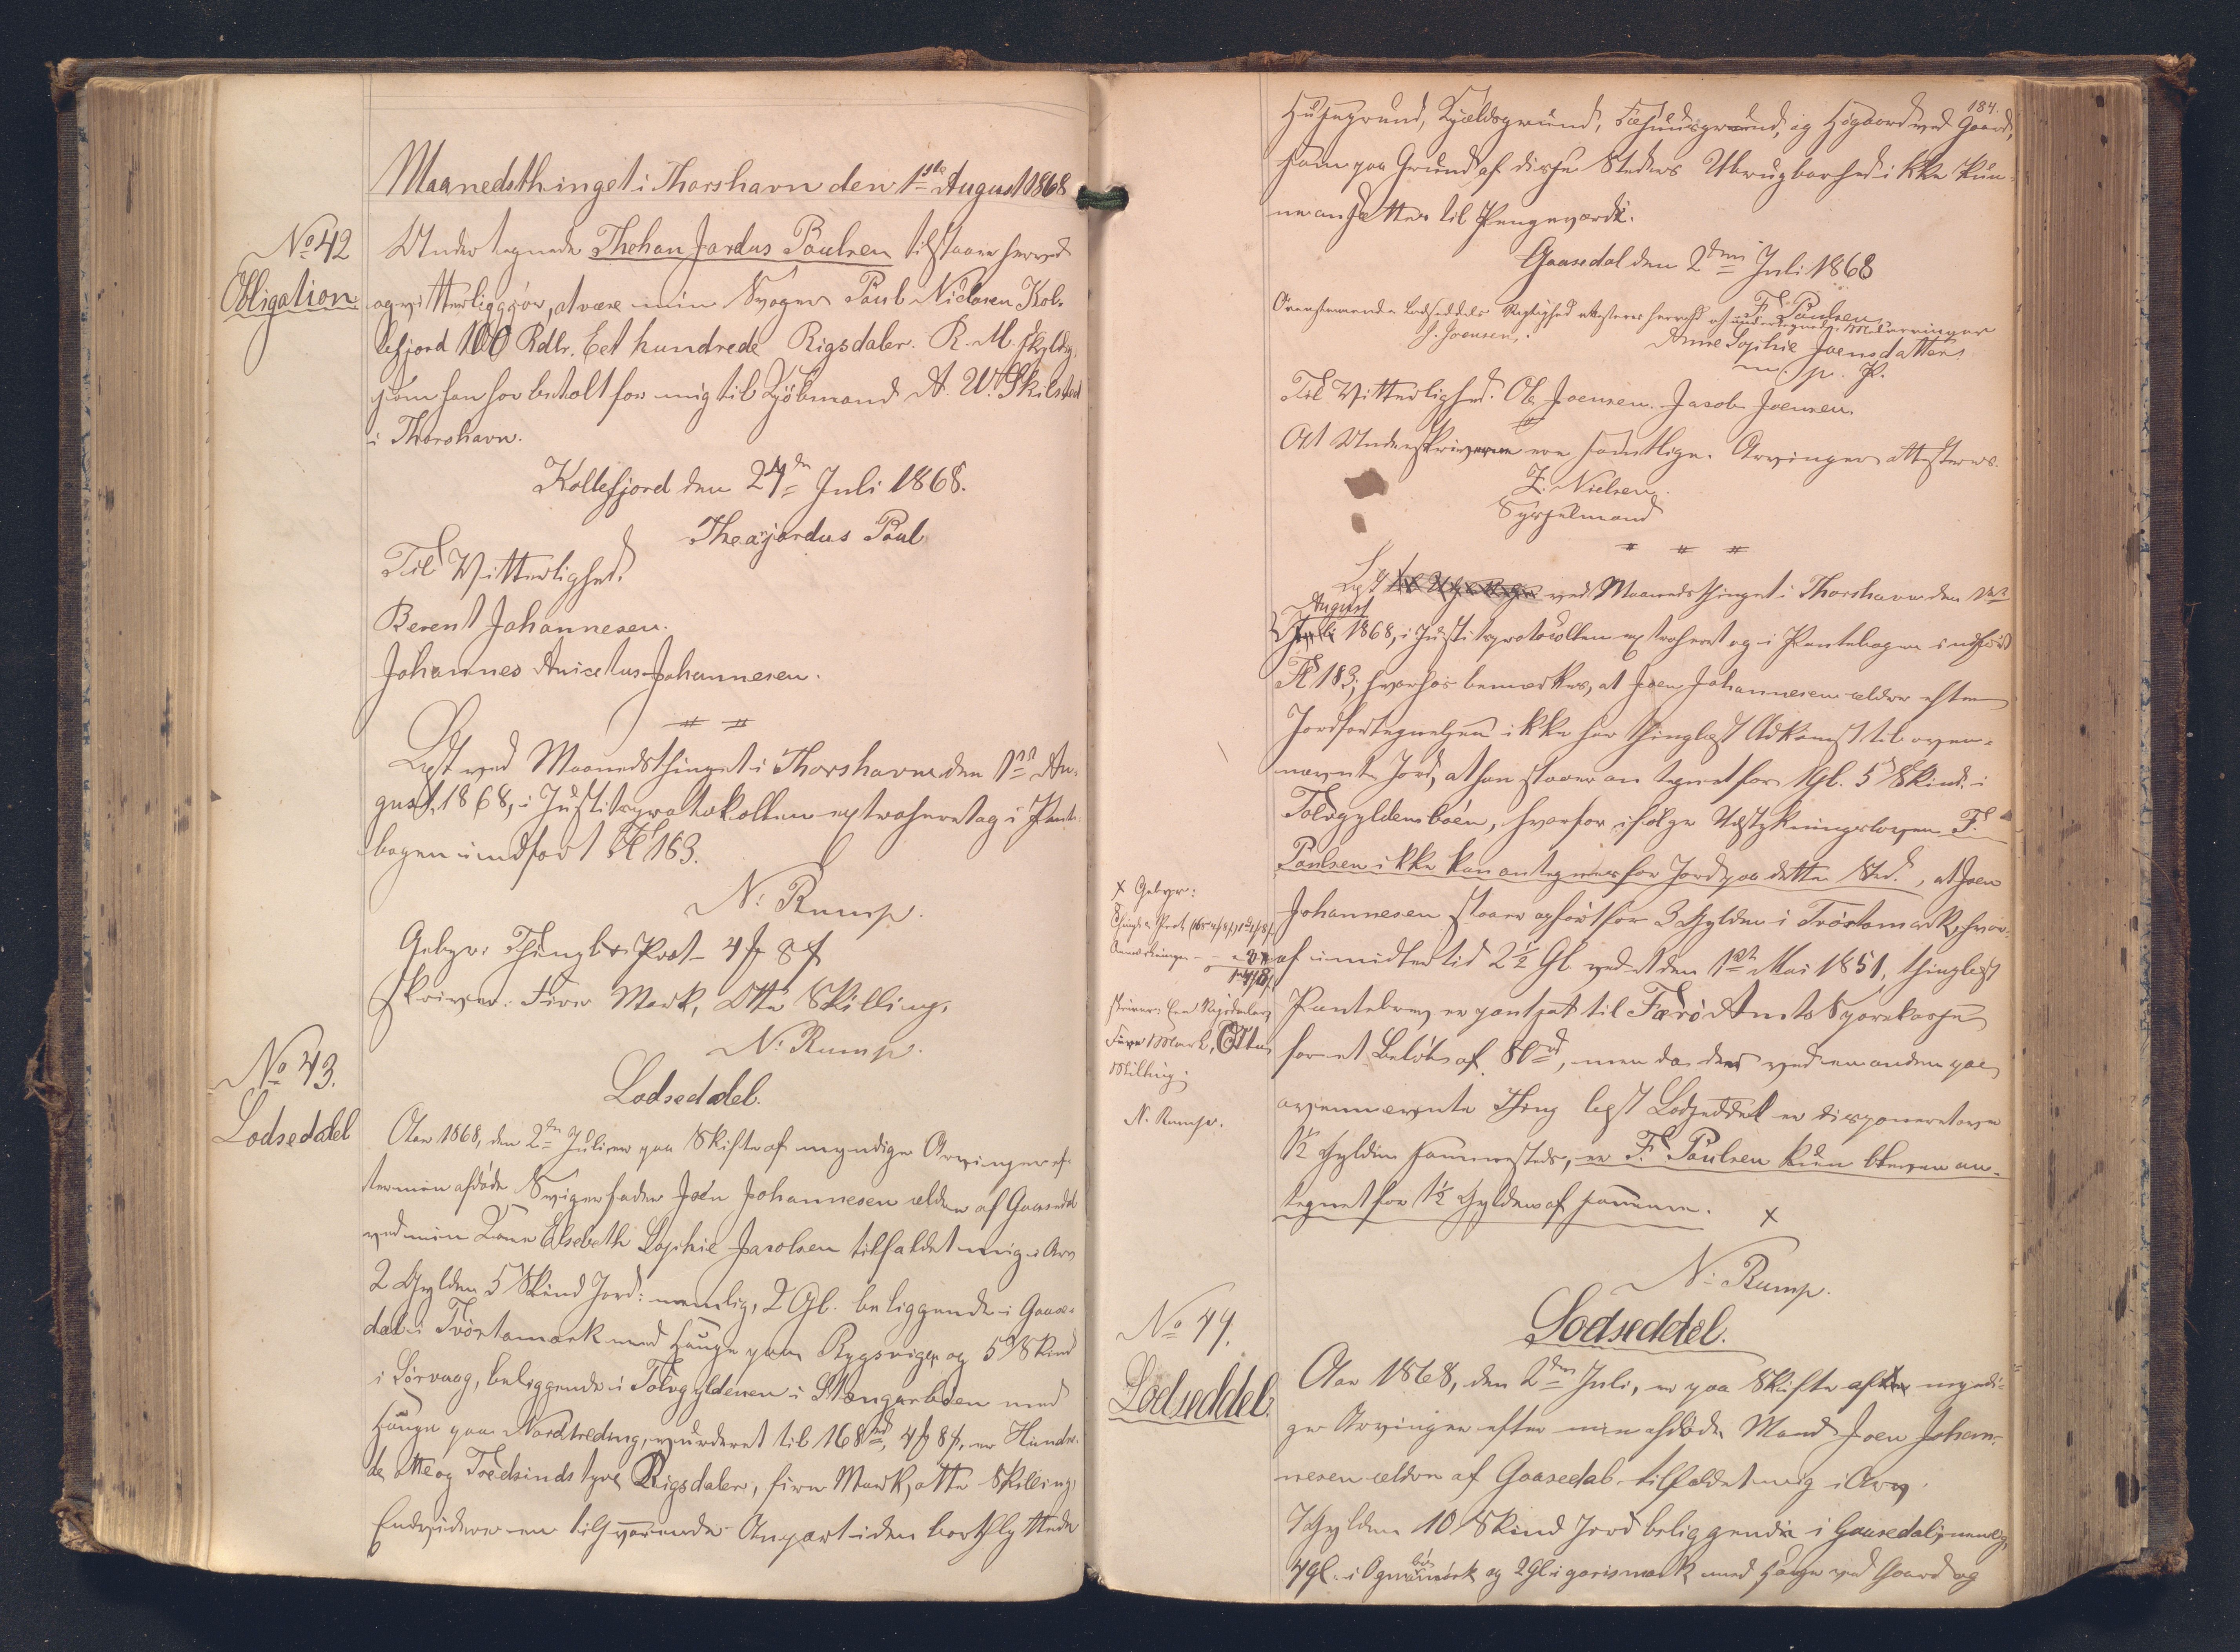 Maanedsthinget i Thorshavn den 1ste August 1868
No 42
Obligation
Undertegnede Thehan Jardus Paulsen tilstaaer herved
og vitterliggjør, at være min Svoger Paul Niclasen Kol-
lefjord 100 Rdlr. Eet hundrede Rigsdaler R. M. skyldig,
som han har betalt for mig til Kjøbmand A. W.
i Thorshavn.
Kollefjord den 24de Juli 1868.
Theajardus Paul
Til Vitterlighed.
Berent Johannesen.
Johannes Anicetus Johannesen.
Læst ved Maanedsthinget i Thorshavn den 1ste Au-
gust 1868, i Justitsprotokollen extraheret og i Pante-
bogen indført Fol 183.
N: Rump.
Gebyr: Thingl. & Prot. 4 ℳ 8 β
skriver: Fire Mark, Otte Skilling.
N: Rump.
No 43.
Lodseddel
Lodseddel.
Aar 1868, den 2den Juli er paa Skifte af myndige Arvinger ef-
ter min afdøde Svigerfader Joen Johannesen ældre af Gaasedal
ved min Kone Elsebeth Sophie Jacobsen tilfaldet mig i Arv
2 Gylden 5 Skind Jord: nemlig, 2 Gl. beliggende i Gaase-
dal i Tvörtamark med Hauge paa Rygsvige og 5 Skind
i Sørvaag, beliggende i Tolvgyldenen i med
Hauge paa Nordtreding, vurderet til 168 rd, 4 ℳ 8 β, er Hundre-
de otte og Tredsindstyve Rigsdaler, fire Mark, otte Skilling,
Endvidere en tilsvarende Anpart i den bortflyttede
184.
Huusgrund, Kjældsgrund, og Høgaard ved Gaard,
som paa Grund af disse Steders Ubrugbarhed ikke kun-
ne ansættes til Pengeværdi.
Gaasedal den 2den Juli 1868
F. Poulsen
Ovenstaaende Lodseddels Rigtighed attesteres herved af undertegnede Medarvinger
J. Joensen. Anne Sophie Joensdatter
m. p. P.
Til Vitterlighed. Ole Joensen. Jacob Joensen.
At Underskriverne ere samtlige Arvinger attesteres.
Z. Nielsen.
Sysselmand
Læst ved Maanedsthinget i Thorshavn den 1ste
August
Juli 1868, i Justitsprotocollen extraheret og i Pantebogen indført
Fol 183, hvorhos bemærkes, at Joen Johannesen ældre efter
Jordfortegnelsen ikke har thinglæst Adkomst til oven-
nævnte Jord, at han staaer antegnet for 1 Gl. 5 Skind i
Tolvgyldenboen, hvorfor ifølge Udstykningsloven F.
Poulsen ikke kan antegnes for Jord paa dette Sted, at Joen
Johannesen staaer opført for 3 Gylden i Tvörtamark, hvor-
af imidlertid 2½ Gl ved et den 1ste Mai 1851, thinglæst
Pantebrev er pantsat til Færø Amts Sparekasse
for et Beløb af 80 rd, men da der ved en anden paa
ovennævnte Thing læst Lodseddel er disponeret over
1½ Gylden sammesteds, er F. Poulsen kun bleven an-
tegnet for 1½ Gylden af samme. x
N: Rump.
x Gebyr:
skriver: Een Rigsdaler
Fire Mark, Otte
Skilling.
N. Rump.
No 44.
Lodseddel.
Lodseddel.
Aar 1868, den 2den Juli, er paa Skifte af myndi-
ge Arvinger efter min afdøde Mand Joen Johan-
nesen ældre af Gaasedal tilfaldet mig i Arv
7 Gylden 10 Skind Jord beliggende i Gaasedal, nemlig,
4 Gl. i og 2 Gl i med Hauge ved Gaard og